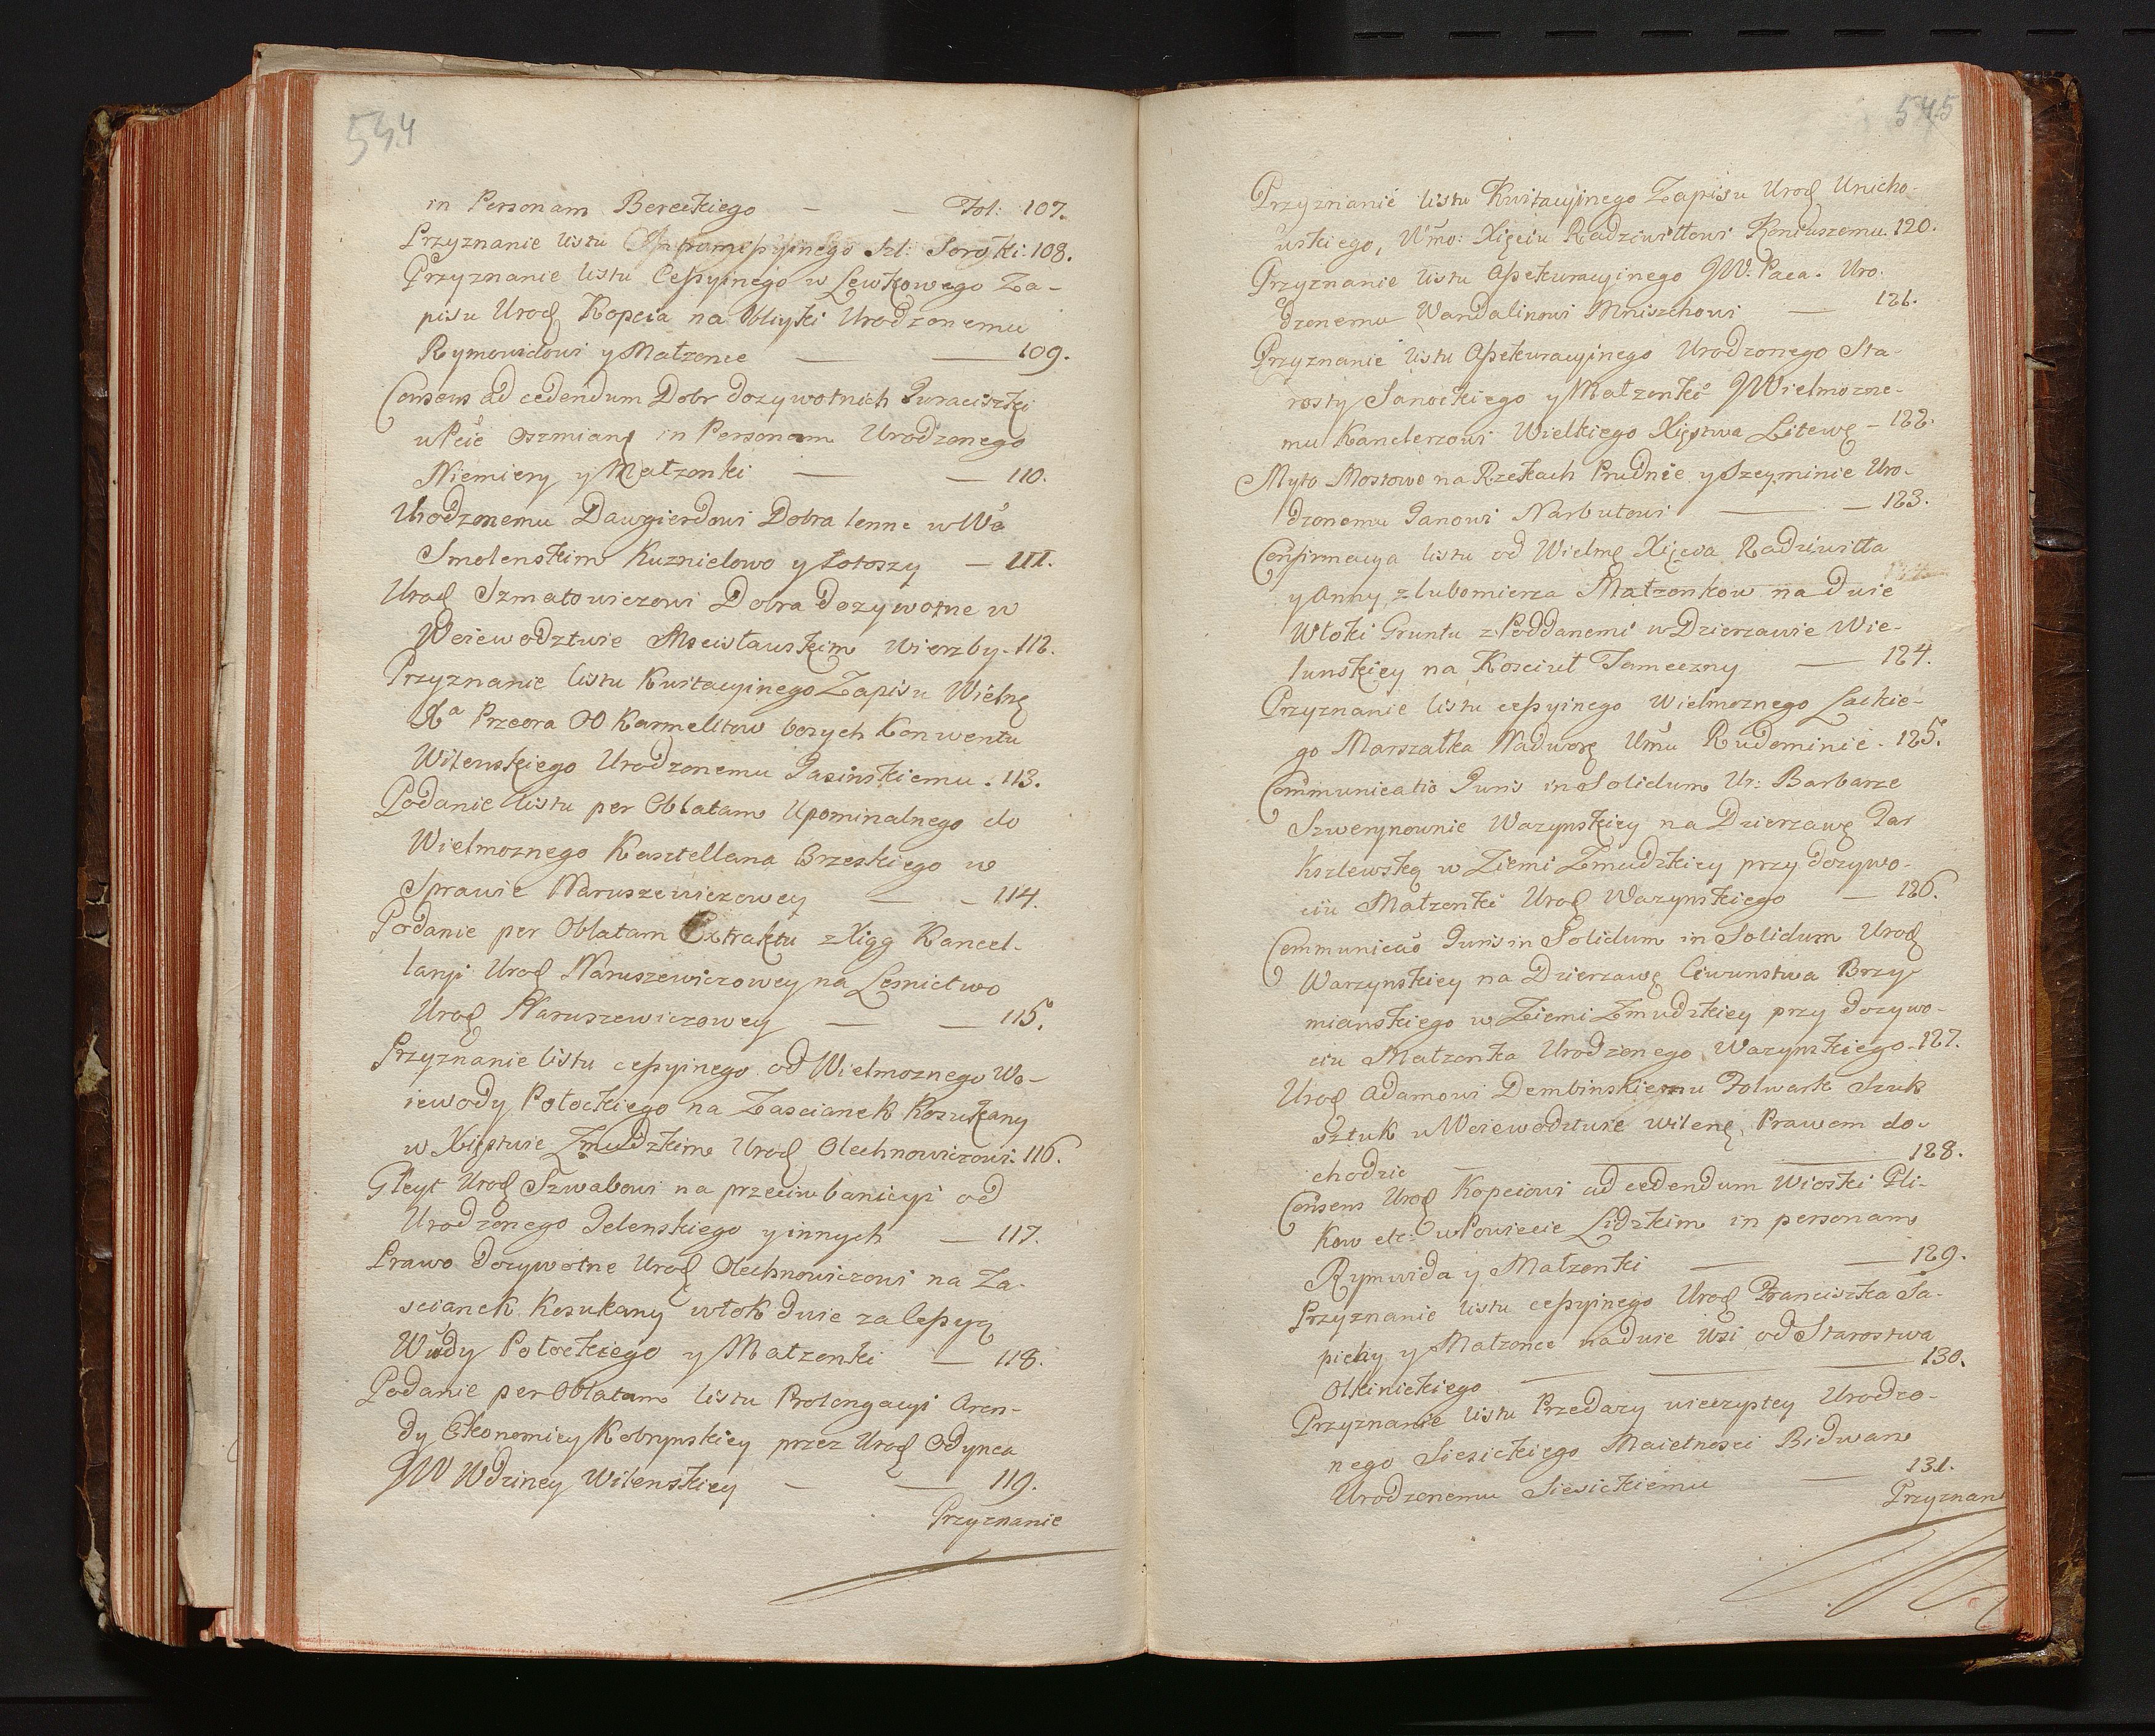 544
in Personam Bereckiego — — Fol: 107.
Przyznanie listu Szl: Soroki. 108.
Przyznanie listu Cessyinego w Lewkowego Za-
pisu Urodz Kopcia na Obliyki Urodzonemu
Rymowidowi y Małzonce — — 109.
Consens ad cedendum Dobr dozywotnich Juraciszki
w Pcie Oszmians in Personam Urodzonego
Niemiery y Małzonki — — 110.
Urodzonemu Dawgierdowi Dobra lenne w Wo
Smolenskim Kuznielowo y Łotoszy — 111.
Urodz Szmatowiczowi Dobra Dozywotne w
Woiewodztwie Mscisławskim Wierzby. 112.
Przyznanie listu Kwitacyinego Zapisu Wielnz
Xa Przeora OO Karmelitow bosych Konwentu
Wilenskiego Urodzonemu Jasinskiemu. 113.
Podanie listu per Oblatam Upominalnego do
Wielmoznego Kasztellana Brzeskiego w
Sprawie Naruszewiczowey — — 114.
Podanie per Oblatam Extraktu z Xiąg Kancel-
laryi Urodz Naruszewiczowey na Lesnictwo
Urodz Naruszewiczowey — — 115.
Przyznanie listu cessyinego od Wielmoznego Wo-
iewody Połockiego na Zascianek Kosukany
w Xięstwie Zmudzkim Urodz Olechnowiczowi. 116.
Gleyt Urodz Szwabowi na przeciw banicyi od
Urodzonego Jelenskiego y innych — 117.
Prawo Dozywotne Urodz Olechnowiczowi na Za-
scianek Kosukany włok dwie za Cessyą
Wdy Połockiego y Małzonki — 118.
Podanie per Oblatam listu Prolongacyi Aren-
dy Ekonomiey Kobrynskiey przez Urodz Odynca
JW Wdziney Wilenskiey — — 119.
Przyznanie
545
Przyznanie listu Kwitacyinego Zapisu Urodz Unicho-
wskiego, Wmo: Xięciu Radziwiłłowi Koniuszemu. 120.
Przyznanie listu Assekuracyinego JW: Paca. Uro-
dzonemu Wandalinowi Mniszchowi — 121.
Przyznanie listu Assekuracyinego Urodzonego Sta-
rosty Sanockiego y Małzonki JWielmozne-
mu Kanclerzowi Wielkiego Xięstwa Litewg — 122.
Myto Mostowe na Rzekach Prudnie y Szeyminie Uro-
dzonemu Janowi Narbutowi — — 123.
Confirmacya listu od Wielmg Xięcia Radziwiłła
y Anny z lubomierza Małzonkow na dwie
Włoki Gruntu z Poddanemi w Dzierzawie Wie-
lunskiey na Kosciuł Tameczny — 124.
Przyznanie listu cessyinego Wielmoznego Lackie-
go Marszałka Nadworg Urmu Rudominie. 125.
Communicatio Juris in Solidum Ur: Barbarze
Szwerynownie Wazynskiey na Dzierzawę Jar
Kszlewską w Ziemi Zmudzkiey przy dozywo-
ciu Małzonki Urodz Wazynskiego — 126.
Communicao Juris in Solidum in Solidum Urodz
Warzynskiey na Dzierzawę Ciwunstwa Brzy-
mianskiego w Ziemi Zmudzkiey przy dozywo-
ciu Małzonka Urodzonego Wazynskiego. 127.
Urodz Adamowi Dembinskiemu Folwark Szuk
sztuk w Woiewodztwie wileng, Prawem do-
chodzic — — 128.
Consens Urodz Kopciowi ad cedendum Wioski Pli-
kow etc: w Powiecie Lidzkim in personam
Rymwida y Małzonki — — 129.
Przyznanie listu cessyinego Urodz Franciszka Sa-
piehy y Małzonce na dwie Wsi od Starostwa
Olkinickiego — — 130.
Przyznanie listu Przedazy wieczystey Urodzo-
nego Siesickiego Maiętnosci Bidwan
Urodzonemu Siesickiemu — 131.
Przyznan